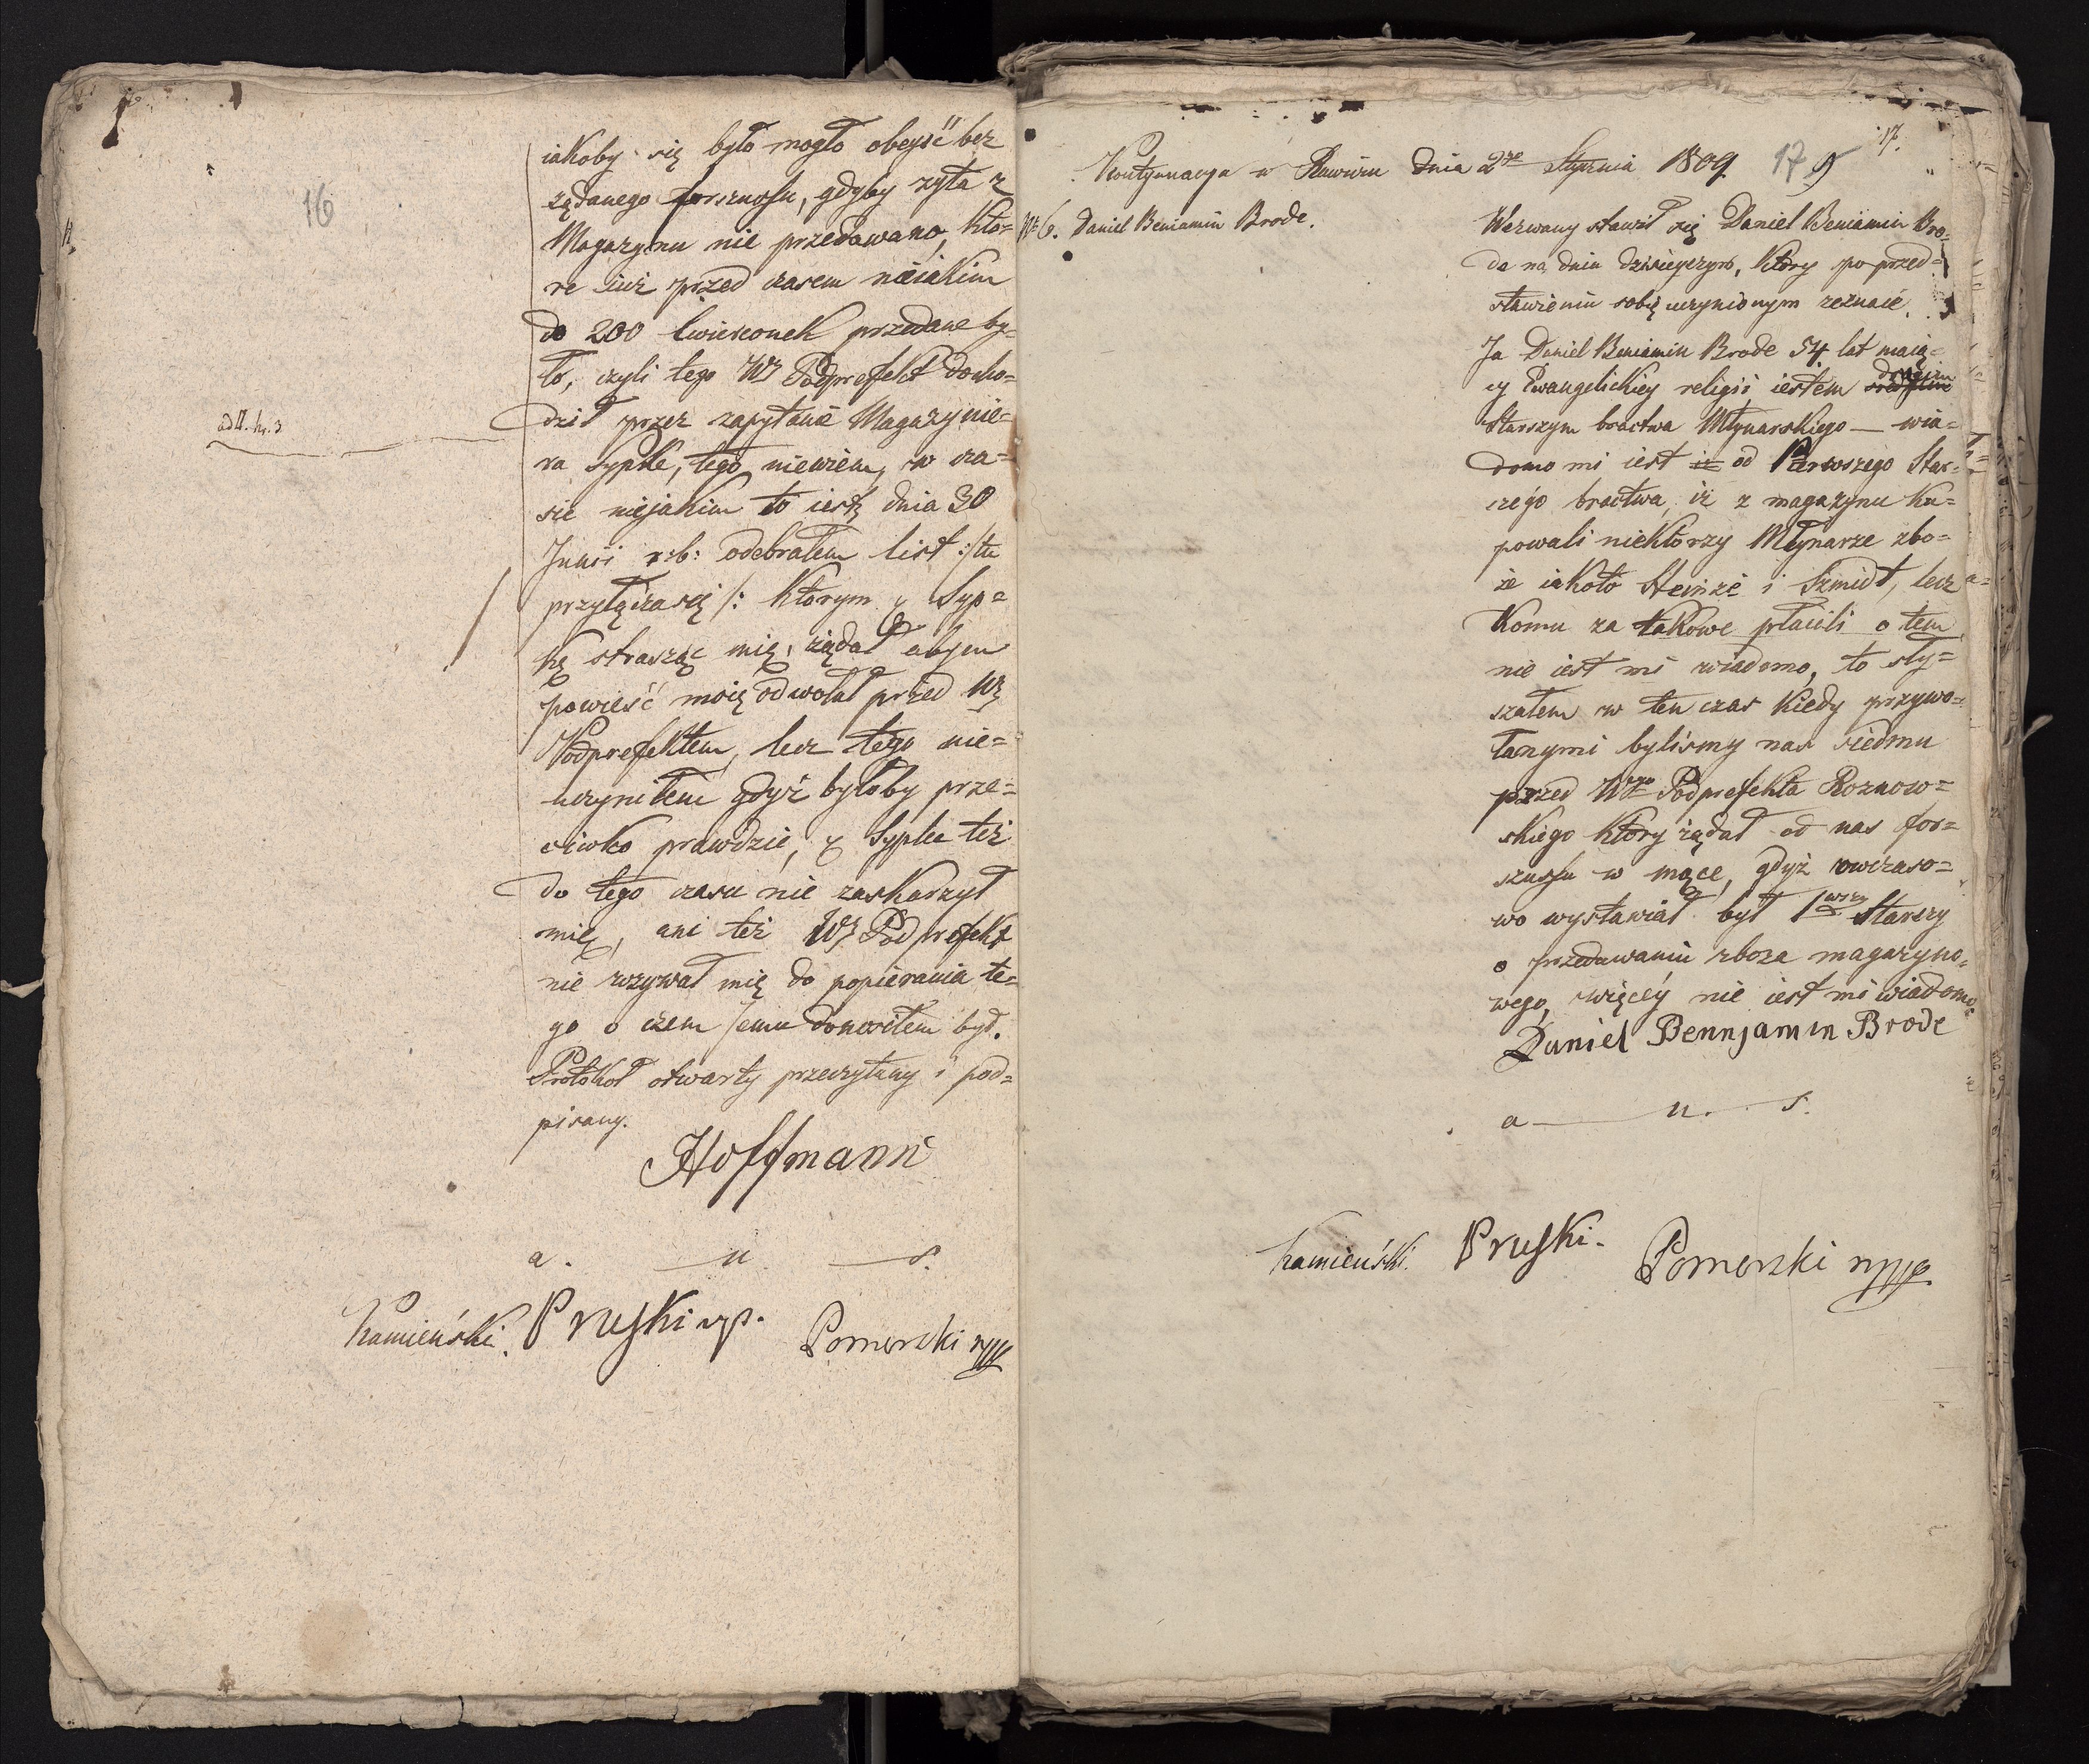 16
iakoby się było mogło obeyść bez
żądanego forszusu, gdyby żyta z
Magazynu nie przedawano, któ=
re iuż przed czasem nieiakim
do 200 ćwierconek przedane by=
ło, czyli tego W Podprefekt docho=
dził przez zapytanie Magazynie=
ad N. hr. 3
ra Sypke, tego niewiem, w cza=
sie niejakim to iest dnia 30
Junii r:b: odebrałem list :/tu
przyłącza się /: którym Syp=
kę strasząc mię, żądał abym
powieść moię odwołał przed W
Podprefektem, lecz tego nie=
uczyniłem gdyż byłoby prze=
ciwko prawdzie, y Sypke też
do tego czasu nie zaskarzył
mię, ani też W Podprefekt
nie wzywał mię do popierania te=
go o czem Jemu doniosłem był.
Protokoł otwarty przeczytany i pod=
pisany.
Hoffmann
a. u. s.
Kamieński. Pruski mp. Pomorski mpp
17.
Kontynuacya w Rawiczu dnia 2go Stycznia 1809. 17 9
Nr 6. Daniel Beniamin Brode.
Wezwany stawił się Daniel Beniamin Bro=
de na dniu dzisieyszym, który po przed=
stawieniu sobie uczynionym zeznaie.
Ja Daniel Beniamin Brode 54 lat maią=
cy Ewangelickiey religii iestem drugim
Starszym bractwa Młynarskiego — wia=
domo mi iest iż od Pierwszego Star=
szego bractwa, iż z magazynu ku=
powali niektórzy Młynarze zbo=
że iakoto Heinze i Szmidt, lecz
komu za takowe płacili o tem
nie iest mi wiadomo, to sły=
szałem w ten czas kiedy przywo=
łanymi bylismy nas siedmu
przed Wgo Podprefekta Roznow=
skiego który żądał od nas for=
szusu w mące, gdyż owczaso=
wo wystawiał był 1wszy Starszy
o przedawaniu zboza magazyno=
wego, więcéy nie iest mi wiadomo.
Daniel Bennjamin Brode
a u. s.
Kamieński. Pruski. Pomorski mpp